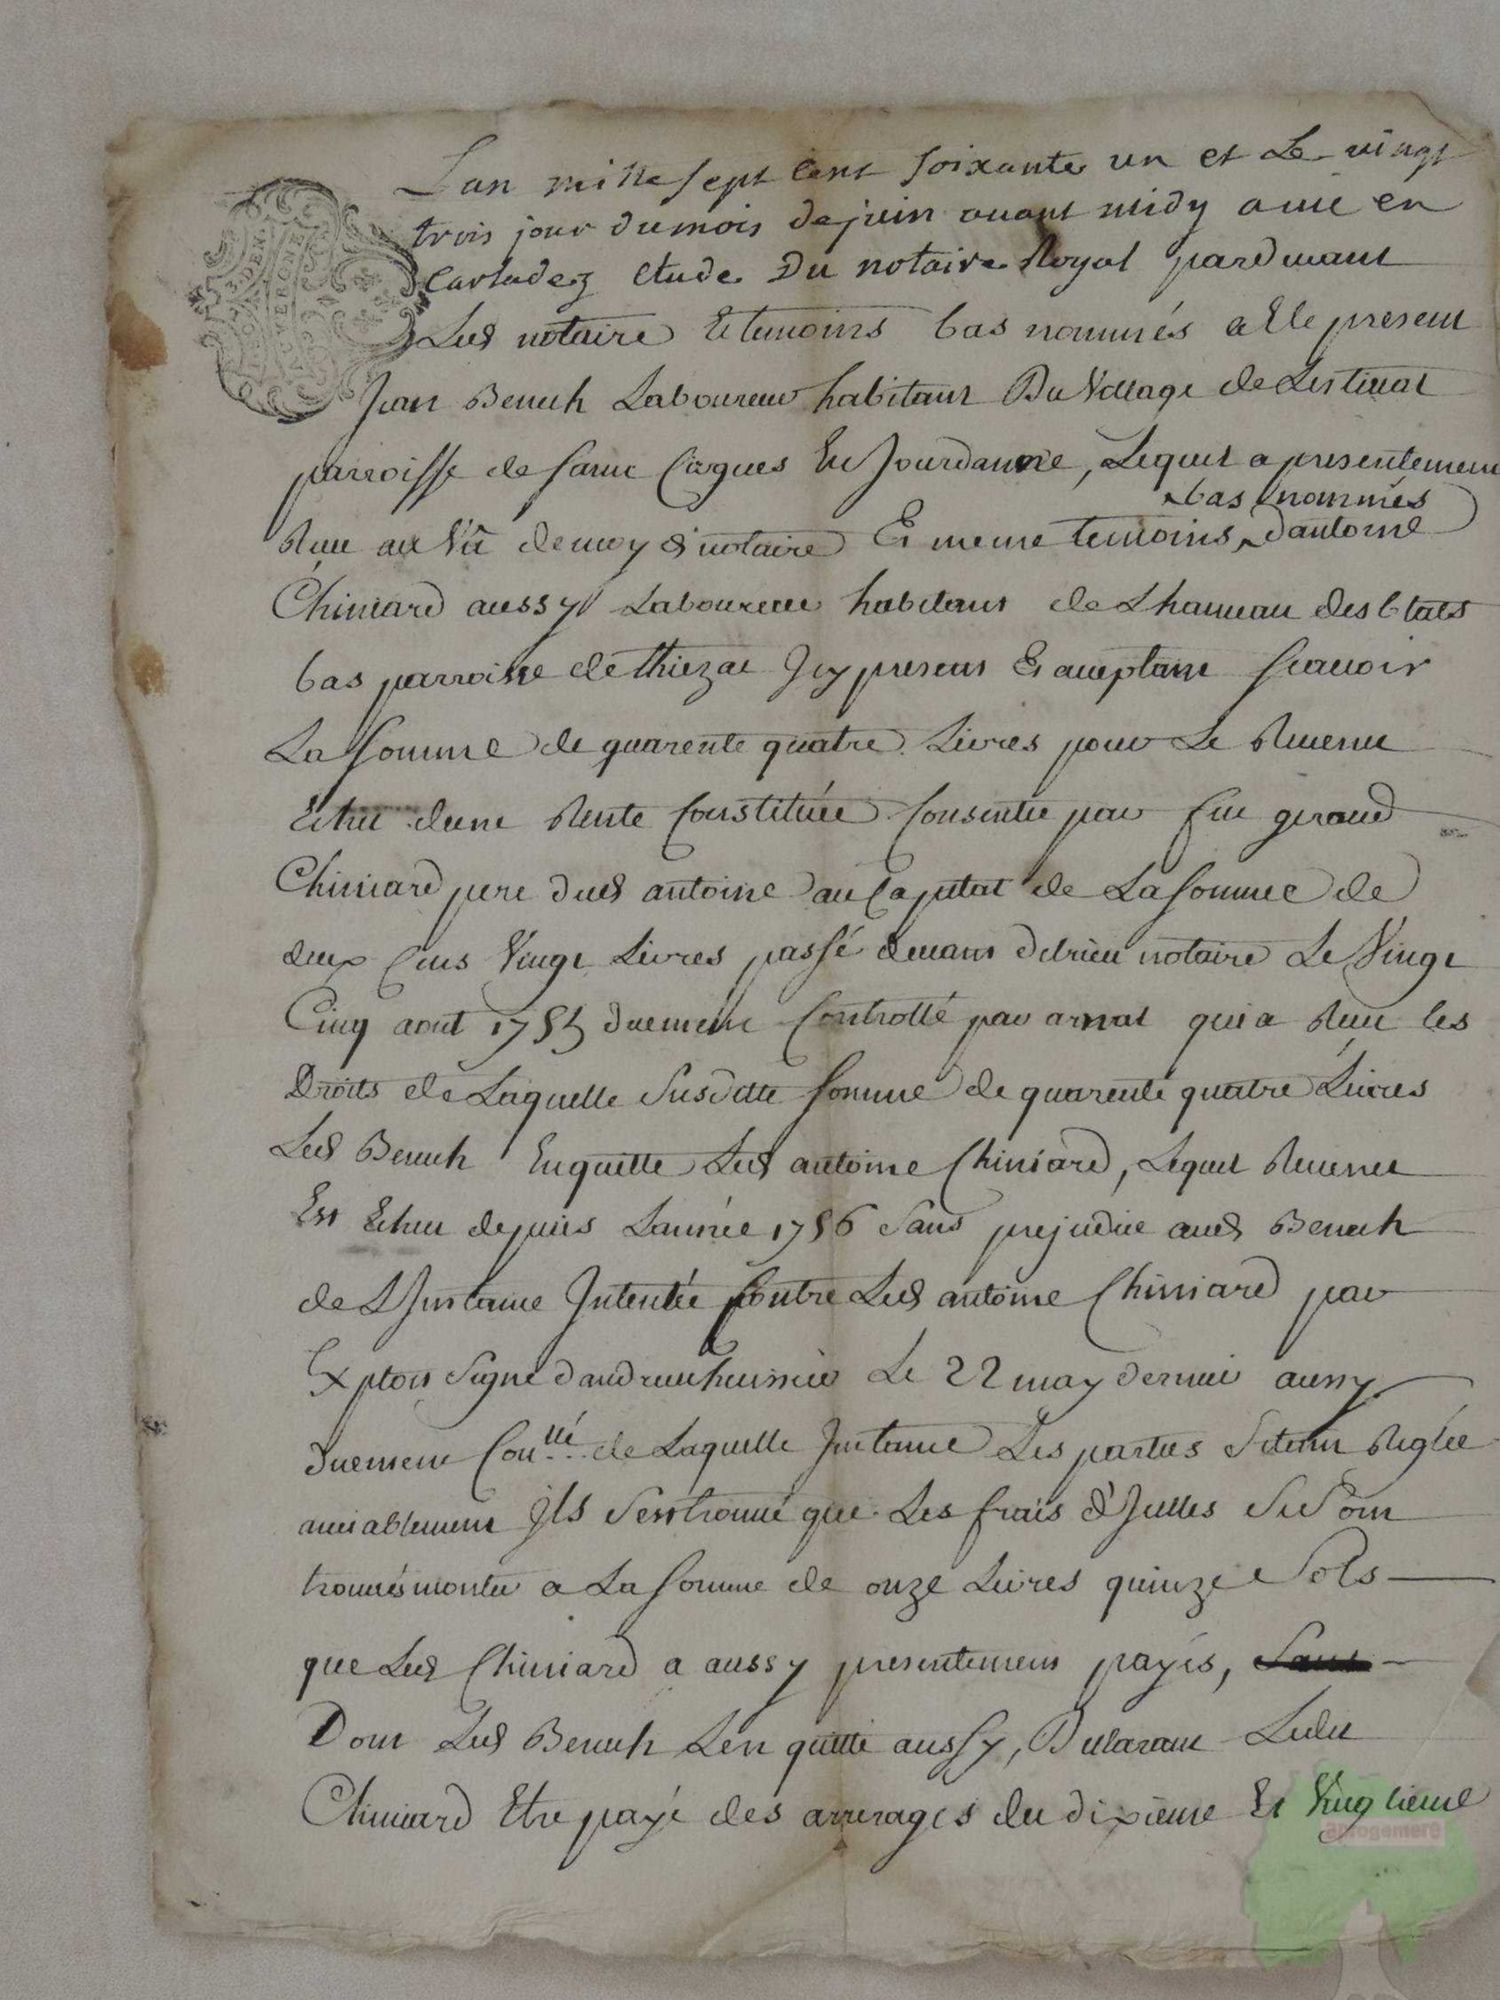 Lan mille sept cent soixante un et Le vingt
trois jour du mois de juin avant midy a vic en
Carladez etude Du notaire Royal pardevant
Led notaire Et temoins bas nommés a Ete present
Jean Benech Laboureur habitant Du Village de Lestinat
parroisse de saint Cirgues En Jourdanne, Lequel a presentement
bas nommés
Reçu au Vû de moy d notaire Et meme temoins dantoine
Chiniard aussy Laboureur habitant de Lhameau des Etats
bas parroisse de thiezac Icy present Et acceptant scavoir
La somme de quarente quatre Livres pour Le Revenu
Echu dune Rente Constituée Consentie par feu geraud
Chiniard pere dud antoine au Capital de La somme de
deux Cens Vingt Livres passé devant delrieu notaire Le Vingt
Cinq aout 1755 duement Controllé par arnal qui a Reçu les
Droits de Laquelle Susditte somme de quarente quatre Livres
Led Benech En quitte Led antoine Chiniard, Lequel Revenu
Est Echu depuis Lannée 1756 Sans prejudice aud Benech
de LInstance Intentée Contre Led antoine Chiniard par
Exploit Signé dandrieu huissier Le 22 may dernier aussy
duement Con.llé de Laquelle Instance Les parties Setant Reglée
amiablement Ils Sest trouvé que Les frais dIcelles Se Sont
trouvés monter a La somme de onze Livres quinze Sols
que Led Chiniard a aussy presentement payés, Sans
Dont Led Benech Len quitte aussy, Declarant Ledit
Chiniard Etre payé des arrerages du dixieme Et Vingtieme
aprogemere